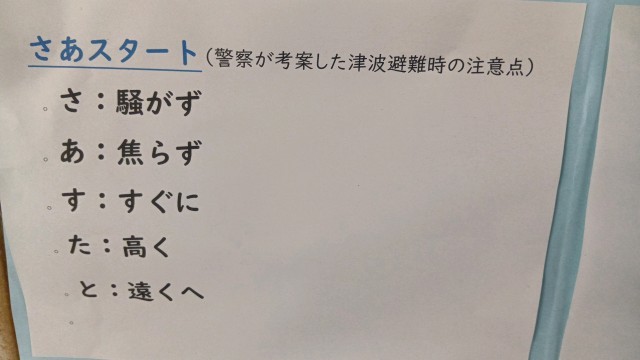 さあスタート（警察が考案した津波避難時の注意点）
。さ：騒がず
。あ：焦らず
。す：すぐに
。た：高く
。と：遠くへ
。